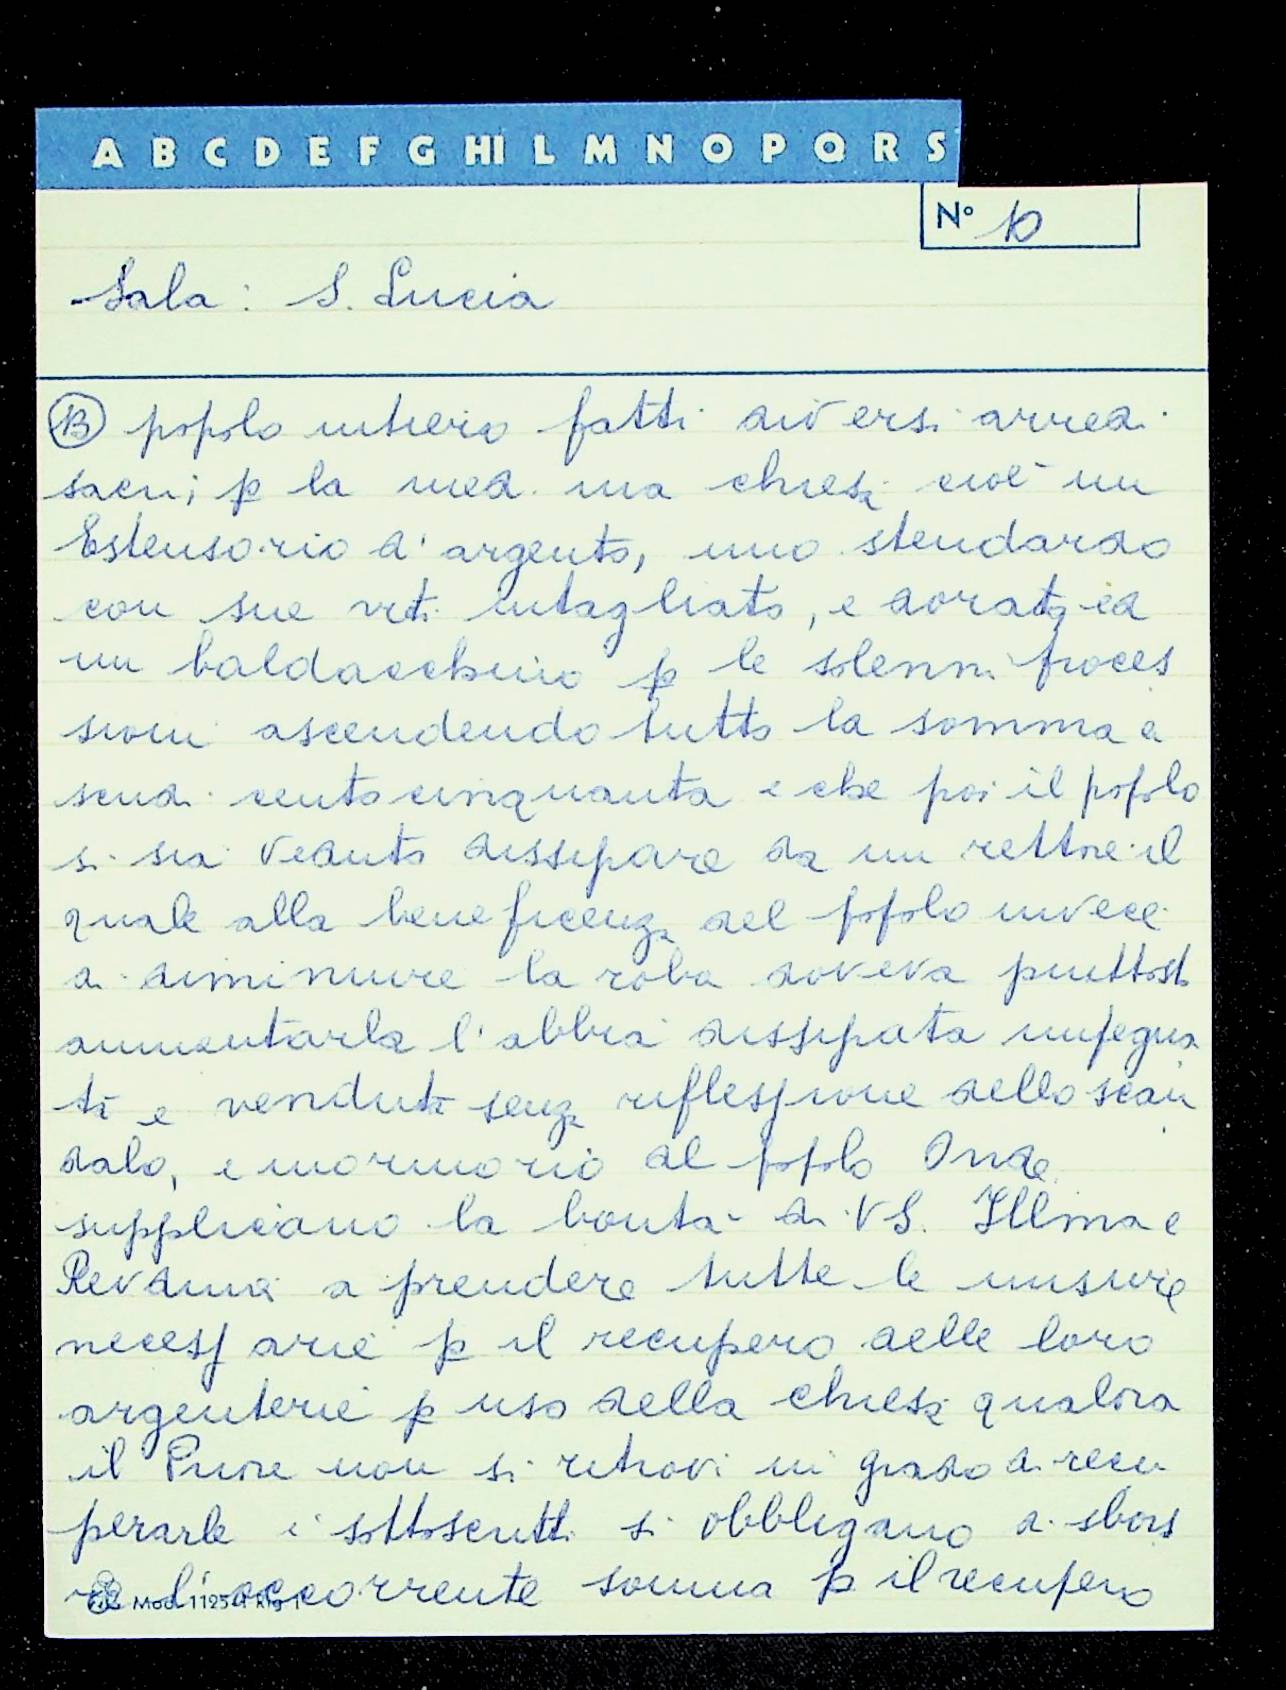 A B C D E F G HI L M N O P Q R S
N° 10
Sala: S. Lucia
B popolo intiero fatti diversi arredi
sacri; p la med. ma chiesa cioè un
Estensorio d'argento, uno stendardo
con sue viti intagliato, e dorato ed
un baldacchino p le solenni proces
sioni ascendendo tutto la somma a
scudi cento cinquanta e che poi il popolo
si sia veduto dissipare da un rettore il
quale alla beneficenza del popolo invece
di diminuire la roba doveva piuttosto
aumentarla l'abbia dissipata impegna
ta e venduta senza riflessione dello scan
dalo, e mormorio al popolo Onde
supplicano la bontà di VS. Illma e
Revdma a prendere tutte le misure
necessarie p il recupero delle loro
argenterie p uso della chiesa qualora
il Priore non si ritrovi in grado di recu
perarle i sottoscritti si obbligano a sbors
l'occorrente somma p il recupero
Mod.